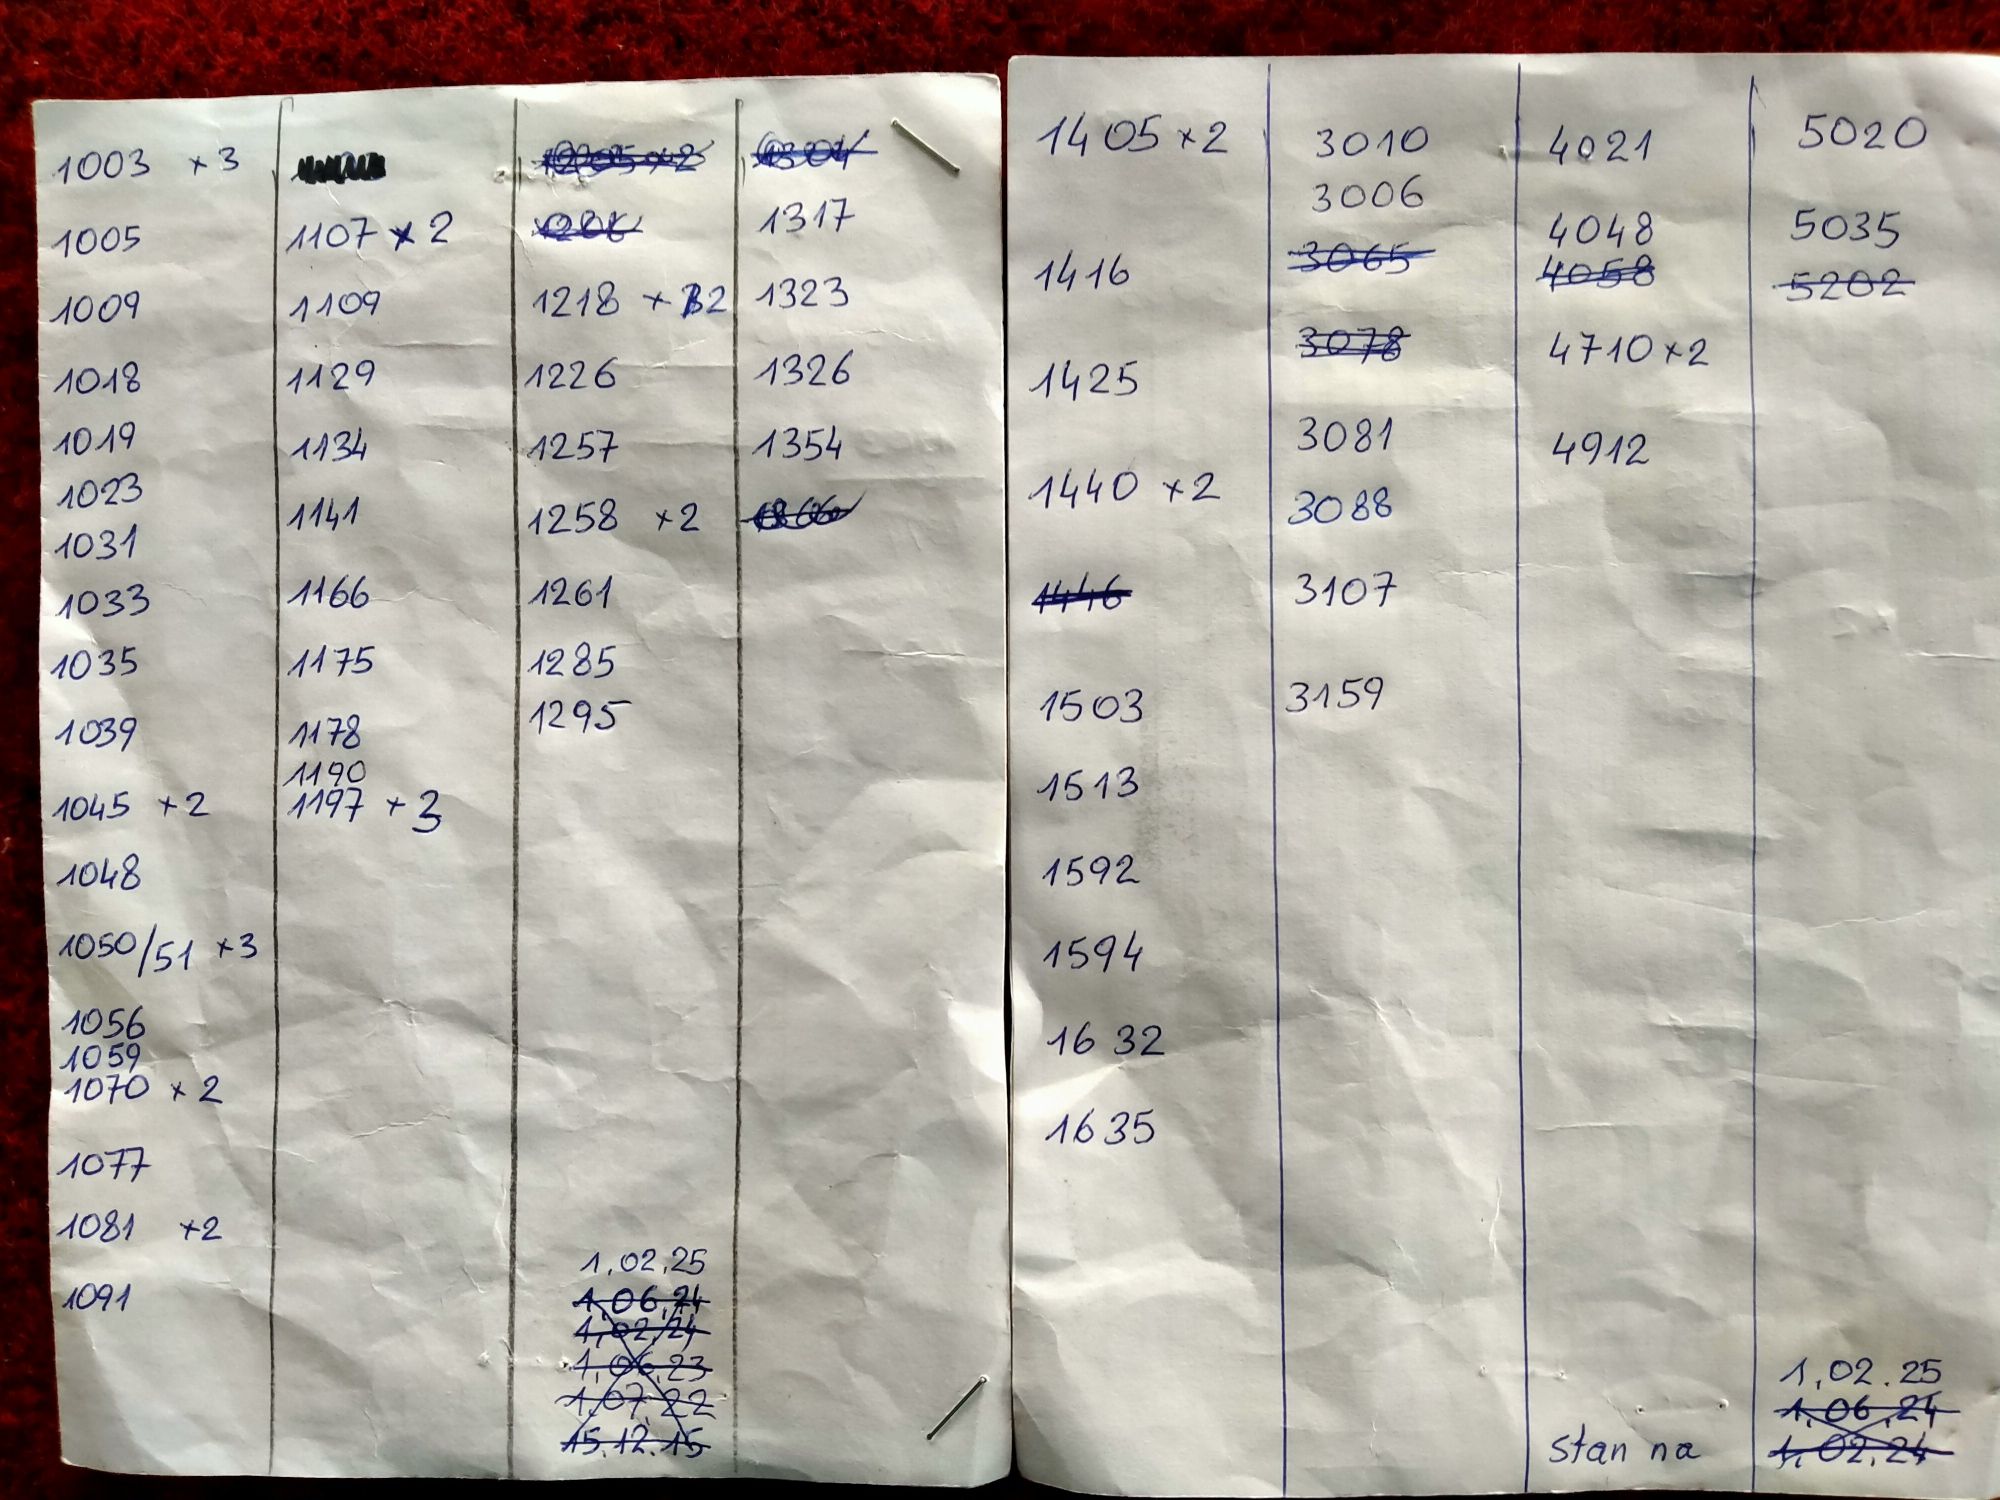 1003 x 3
1005
1009
1018
1019
1023
1031
1033
1035
1039
1045 x 2
1048
1050/51 x3
1056
1059
1070 x 2
1077
1081 x2
1091
1107 x 2
1109
1129
1134
1141
1166
1175
1178
1190
1197 x 3
1206
1218 x 2
1226
1257
1258 x 2
1261
1285
1295
1.02.25
1.06.24
1.02.24
1.06.23
1.07.22
15.12.15
1304
1317
1323
1326
1354
1405 x2
1416
1425
1440 x2
1446
1503
1513
1592
1594
1632
1635
3010
3006
3065
3078
3081
3088
3107
3159
4021
4048
4058
4710 x2
4912
stan na
5020
5035
5202
1.02.25
1.06.24
1.02.24